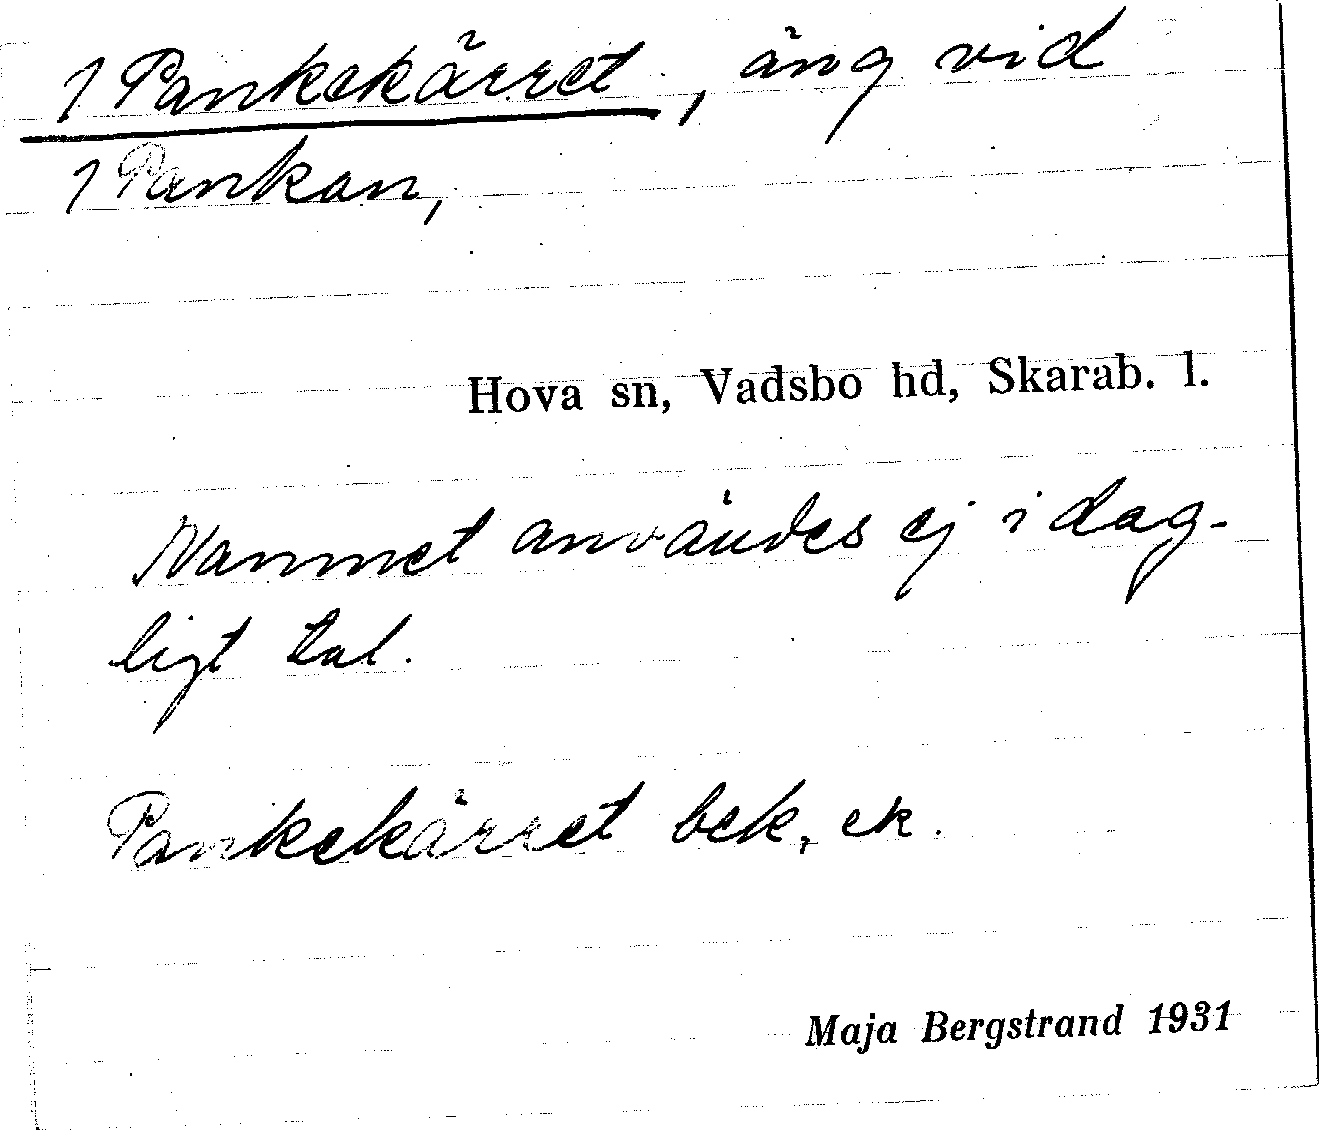 1 Pankekärret, äng vid
1 Pankan,
Hova sn, Vadsbo hd, Skarab. l.
Namnet användes ej i dag-
ligt tal.
Pankekärret bek, ek.
Maja Bergstrand 1931